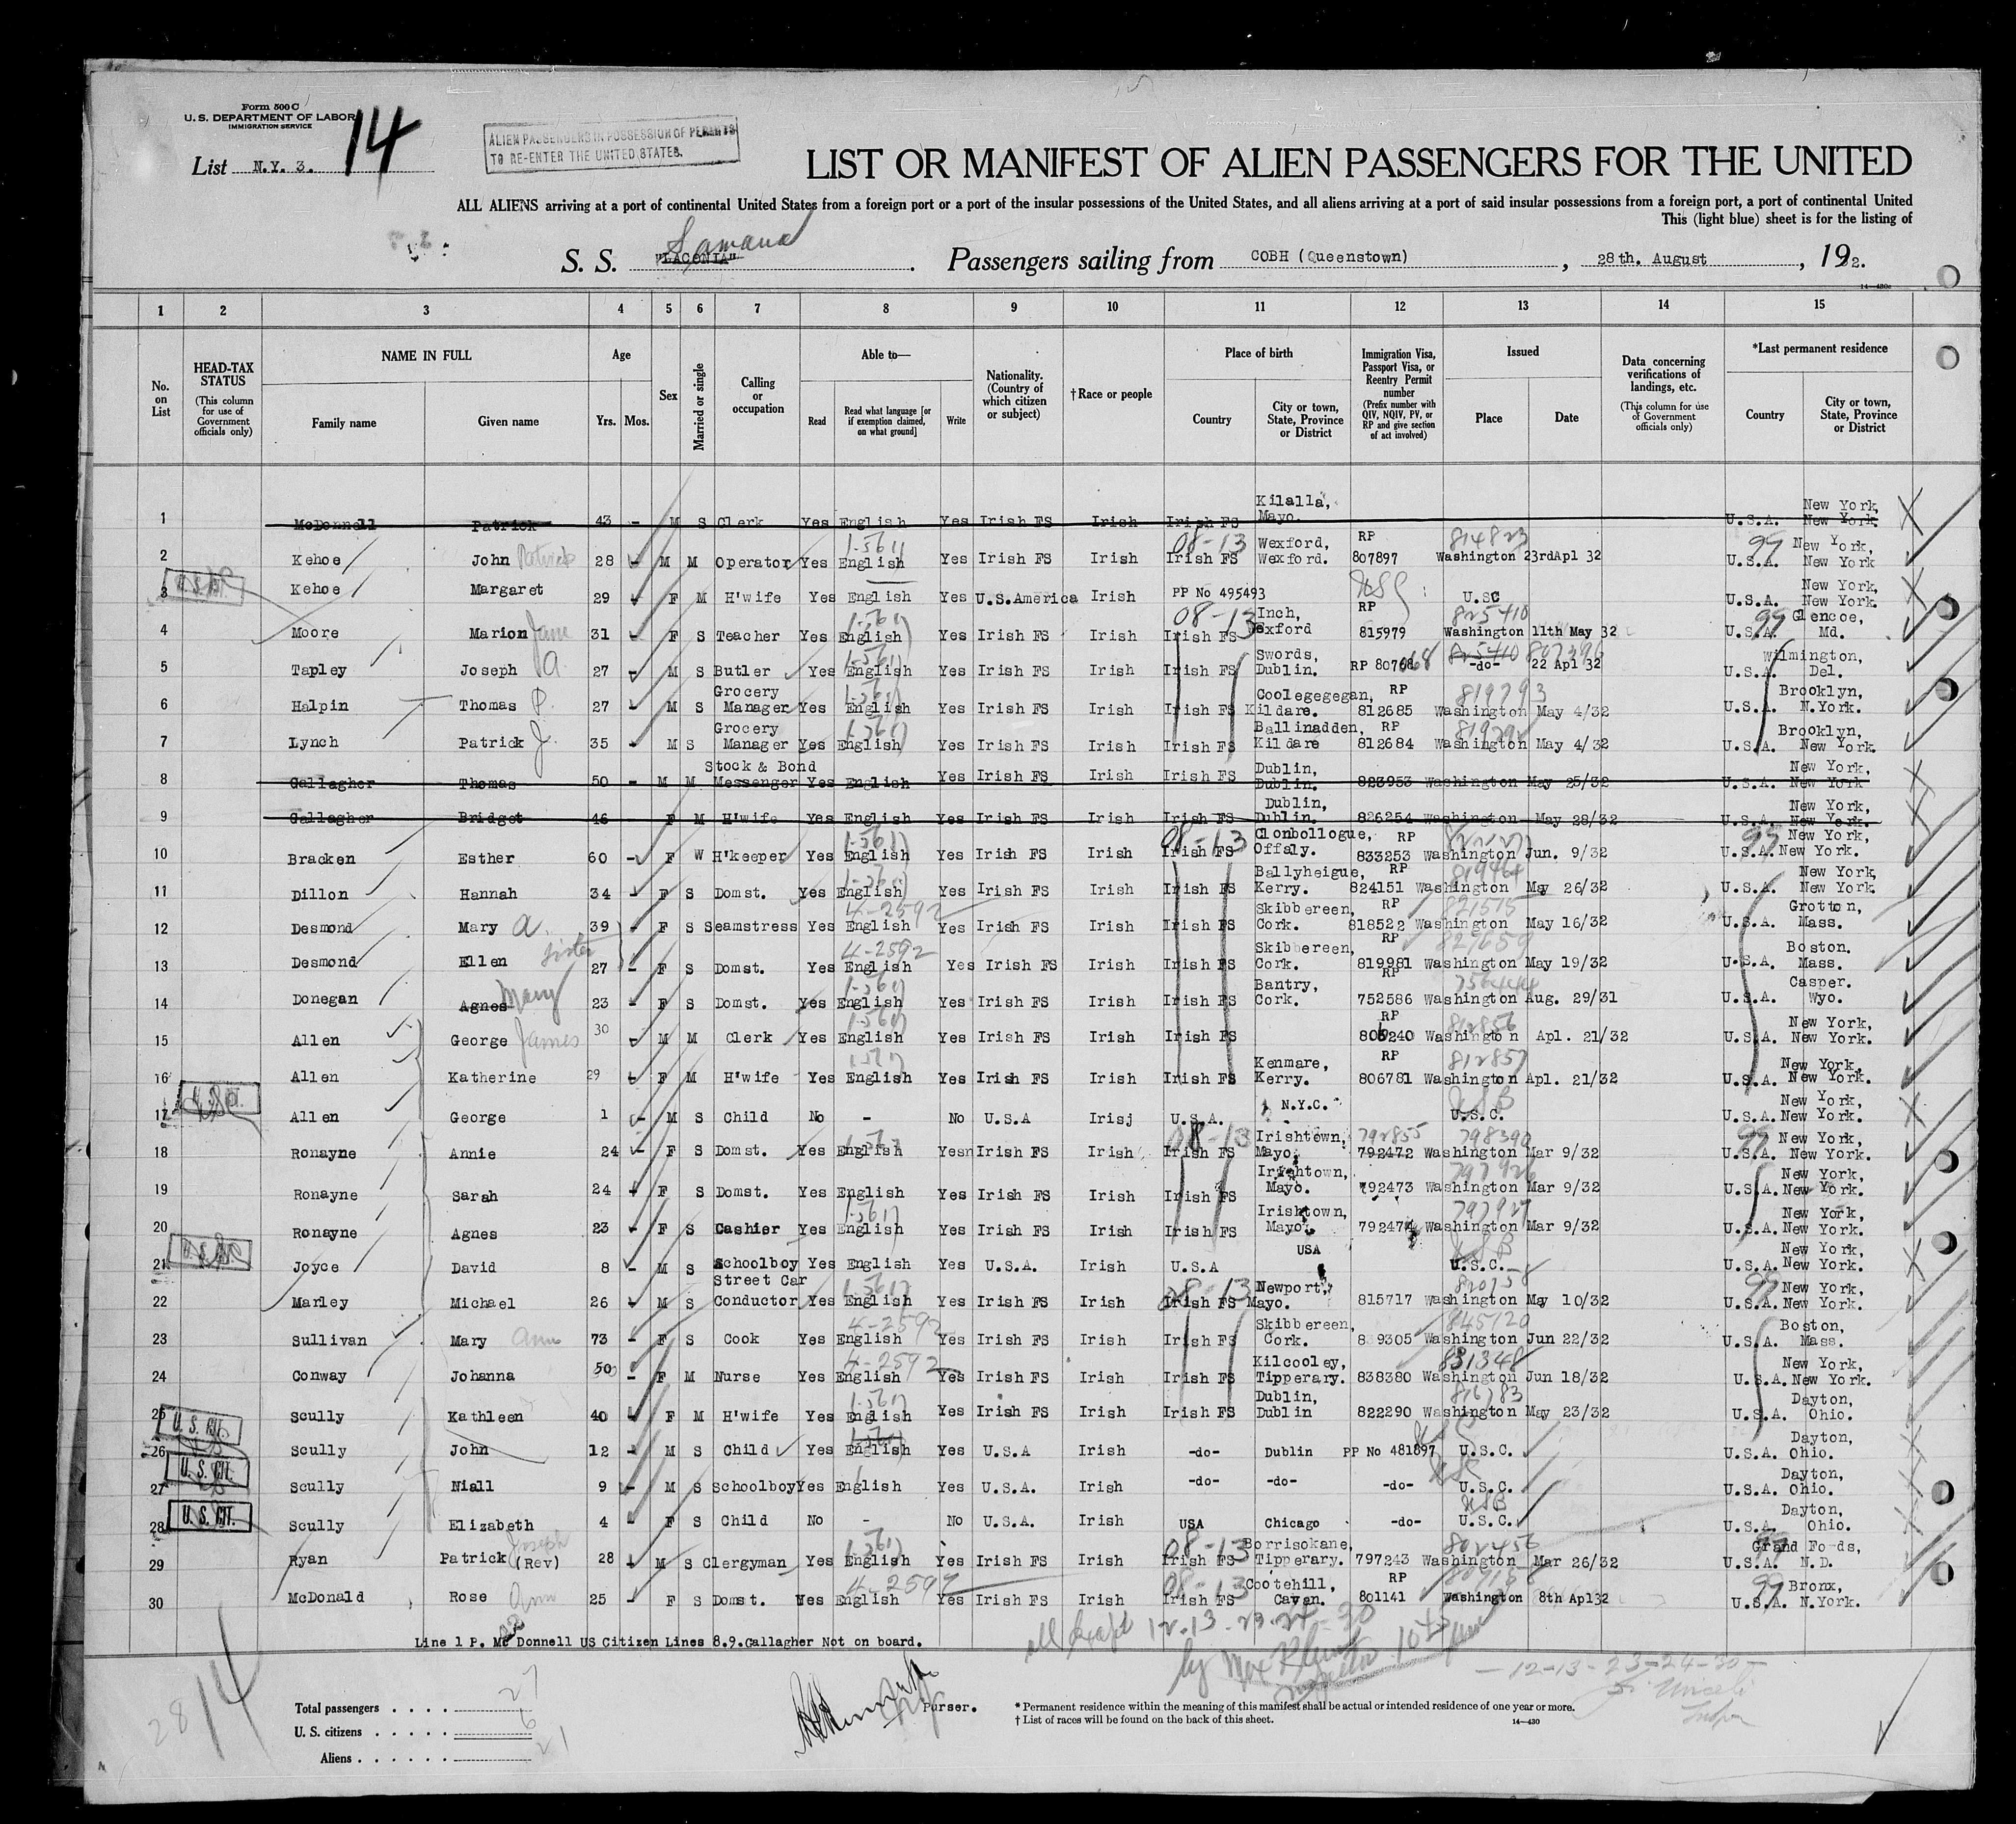 Form 500 C
U. S. DEPARTMENT OF LABOR
IMMIGRATION SERVICE
14
List N.Y. 3.
ALIEN PASSENGERS IN POSSESSION OF PERMITS
TO RE-ENTER THE UNITED STATES.
LIST OR MANIFEST OF ALIEN PASSENGERS FOR THE UNITED
ALL ALIENS arriving at a port of continental United States from a foreign port or a port of the insular possessions of the United States, and all aliens arriving at a port of said insular possessions from a foreign port, a port of continental United
This (light blue) sheet is for the listing of
S. S. "LACONIA" Samaria . Passengers sailing from COBH (Queenstown) , 28th. August , 192.
14—430c
1 2 3 4 5 6 7 8 9 10 11 12 13 14 15
No. on List
HEAD-TAX STATUS (This column for use of Government officials only)
NAME IN FULL Family name Given name
Age Yrs. Mos.
Sex
Married or single
Calling or occupation
Able to— Read Read what language [or if exemption claimed, on what ground] Write
Nationality. (Country of which citizen or subject)
†Race or people
Place of birth Country City or town, State, Province or District
Immigration Visa, Passport Visa, or Reentry Permit number (Prefix number with QIV, NQIV, PV, or RP and give section of act involved)
Issued Place Date
Data concerning verifications of landings, etc. (This column for use of Government officials only)
*Last permanent residence Country City or town, State, Province or District
1 McDonnell Patrick 43 - M S Clerk Yes English Yes Irish FS Irish Irish FS Kilalla, Mayo. U.S.A. New York, New York
2 Kehoe John Patrick 28 - M M Operator Yes English 1-561 Yes Irish FS Irish 08-13 Irish FS Wexford, Wexford. RP 807897 814823 Washington 23rdApl 32 99 U.S.A. New York, New York
3 Kehoe Margaret 29 - F M H'wife Yes English Yes U.S.America Irish PP No 495493 U.SC U.S.A. New York, New York.
4 Moore Marion Jane 31 - F S Teacher Yes English 1-561 Yes Irish FS Irish 08-13 Irish FS Inch, Wexford RP 815979 825410 Washington 11th May 32 99 U.S.A. Glencoe, Md.
5 Tapley Joseph A. 27 - M S Butler Yes English 1-561 Yes Irish FS Irish Irish FS Swords, Dublin. RP 80768 825410 807396 -do- 22 Apl 32 U.S.A. Wilmington, Del.
6 Halpin Thomas P. 27 - M S Grocery Manager Yes English 1-561 Yes Irish FS Irish Irish FS Coolegegegan, Kildare. RP 812685 819793 Washington May 4/32 U.S.A. Brooklyn, N.York.
7 Lynch Patrick J. 35 - M S Grocery Manager Yes English 1-561 Yes Irish FS Irish Irish FS Ballinadden, Kildare RP 812684 Washington May 4/32 U.S.A. Brooklyn, New York.
8 Gallagher Thomas 50 - M M Stock & Bond Messenger Yes English Yes Irish FS Irish Irish FS Dublin, Dublin. 823953 Washington May 25/32 U.S.A. New York, New York
9 Gallagher Bridget 46 - F M H'wife Yes English Yes Irish FS Irish Irish FS Dublin, Dublin. 826254 Washington May 28/32 U.S.A. New York, New York.
10 Bracken Esther 60 - F W H'keeper Yes English 1-561 Yes Irish FS Irish 08-13 Irish FS Clonbollogue, Offaly. RP 833253 Washington Jun. 9/32 99 U.S.A. New York, New York.
11 Dillon Hannah 34 - F S Domst. Yes English Yes Irish FS Irish Irish FS Ballyheigue, Kerry. RP 824151 819464 Washington May 26/32 U.S.A. New York, New York
12 Desmond Mary A. 39 - F S Seamstress Yes English 4-2592 Yes Irish FS Irish Irish FS Skibbereen, Cork. RP 818522 821515 Washington May 16/32 U.S.A. Grotton, Mass.
13 Desmond Ellen sister 27 - F S Domst. Yes English 4-2592 Yes Irish FS Irish Irish FS Skibbereen, Cork. RP 819981 821659 Washington May 19/32 U.S.A. Boston. Mass.
14 Donegan Agnes Mary 23 - F S Domst. Yes English 1-561 Yes Irish FS Irish Irish FS Bantry, Cork. RP 752586 756444 Washington Aug. 29/31 U.S.A. Casper. Wyo.
15 Allen George James 30 - M M Clerk Yes English 1-561 Yes Irish FS Irish Irish FS RP 806240 812856 Washington Apl. 21/32 U.S.A. New York, New York.
16 Allen Katherine 29 - F M H'wife Yes English 1-561 Yes Irish FS Irish Irish FS Kenmare, Kerry. RP 806781 812857 Washington Apl. 21/32 U.S.A. New York, New York.
17 Allen George 1 - M S Child No - No U.S.A Irisj U.S.A. N.Y.C. USB U.S.C. U.S.A. New York, New York.
18 Ronayne Annie 24 - F S Domst. Yes English 1-561 Yesn Irish FS Irish 08-13 Irish FS Irishtown, Mayo. 792855 792472 798390 Washington Mar 9/32 99 U.S.A. New York, New York.
19 Ronayne Sarah 24 - F S Domst. Yes English Yes Irish FS Irish Irish FS Irishtown, Mayo. 792473 797926 Washington Mar 9/32 U.S.A. New York, New York.
20 Ronayne Agnes 23 - F S Cashier Yes English 1-561 Yes Irish FS Irish Irish FS Irishtown, Mayo. 792474 797927 Washington Mar 9/32 U.S.A. New York, New York.
21 Joyce David 8 - M S Schoolboy Yes English Yes U.S.A. Irish U.S.A USA USB U.S.C. U.S.A. New York, New York.
22 Marley Michael 26 - M S Street Car Conductor Yes English 1-561 Yes Irish FS Irish 08-13 Irish FS Newport, Mayo. 815717 820758 Washington May 10/32 99 U.S.A. New York, New York.
23 Sullivan Mary Ann 73 - F S Cook Yes English 4-2592 Yes Irish FS Irish Irish FS Skibbereen, Cork. 839305 845120 Washington Jun 22/32 U.S.A. Boston, Mass.
24 Conway Johanna 50 - F M Nurse Yes English 4-2592 Yes Irish FS Irish Irish FS Kilcooley, Tipperary. 838380 831348 Washington Jun 18/32 U.S.A. New York, New York.
25 Scully Kathleen 40 - F M H'wife Yes English 1-561 Yes Irish FS Irish Irish FS Dublin, Dublin 822290 816783 Washington May 23/32 U.S.A. Dayton, Ohio.
U. S. CIT.
26 Scully John 12 - M S Child Yes English Yes U.S.A Irish -do- Dublin PP No 481897 U.S.C. U.S.A. Dayton, Ohio.
U. S. CIT.
27 Scully Niall 9 - M S Schoolboy Yes English Yes U.S.A. Irish -do- -do- -do- U.S.C. U.S.A. Dayton, Ohio.
U. S. CIT.
28 Scully Elizabeth 4 - F S Child No - No U.S.A. Irish USA Chicago -do- USB U.S.C. U.S.A. Dayton, Ohio.
29 Ryan Patrick Joseph (Rev) 28 - M S Clergyman Yes English 1-561 Yes Irish FS Irish 08-13 Irish FS Borrisokane, Tipperary. 797243 802456 Washington Mar 26/32 99 U.S.A. Grand Fords, N.D.
30 McDonald Rose Ann 25 - F S Domst. Yes English 4-2592 Yes Irish FS Irish 08-13 Irish FS Cootehill, Cavan. RP 801141 Washington 8th Apl32 99 U.S.A. Bronx, N.York.
Line 1 P. Mc Donnell US Citizen Lines 8.9.Gallagher Not on board.
all except 12-13-23-24-30
by Max
- 12-13-23-24-30 -
28 14
Total passengers . . . . 27
U. S. citizens . . . . . 6
Aliens . . . . . . 21
Purser.
* Permanent residence within the meaning of this manifest shall be actual or intended residence of one year or more.
† List of races will be found on the back of this sheet.
14—430